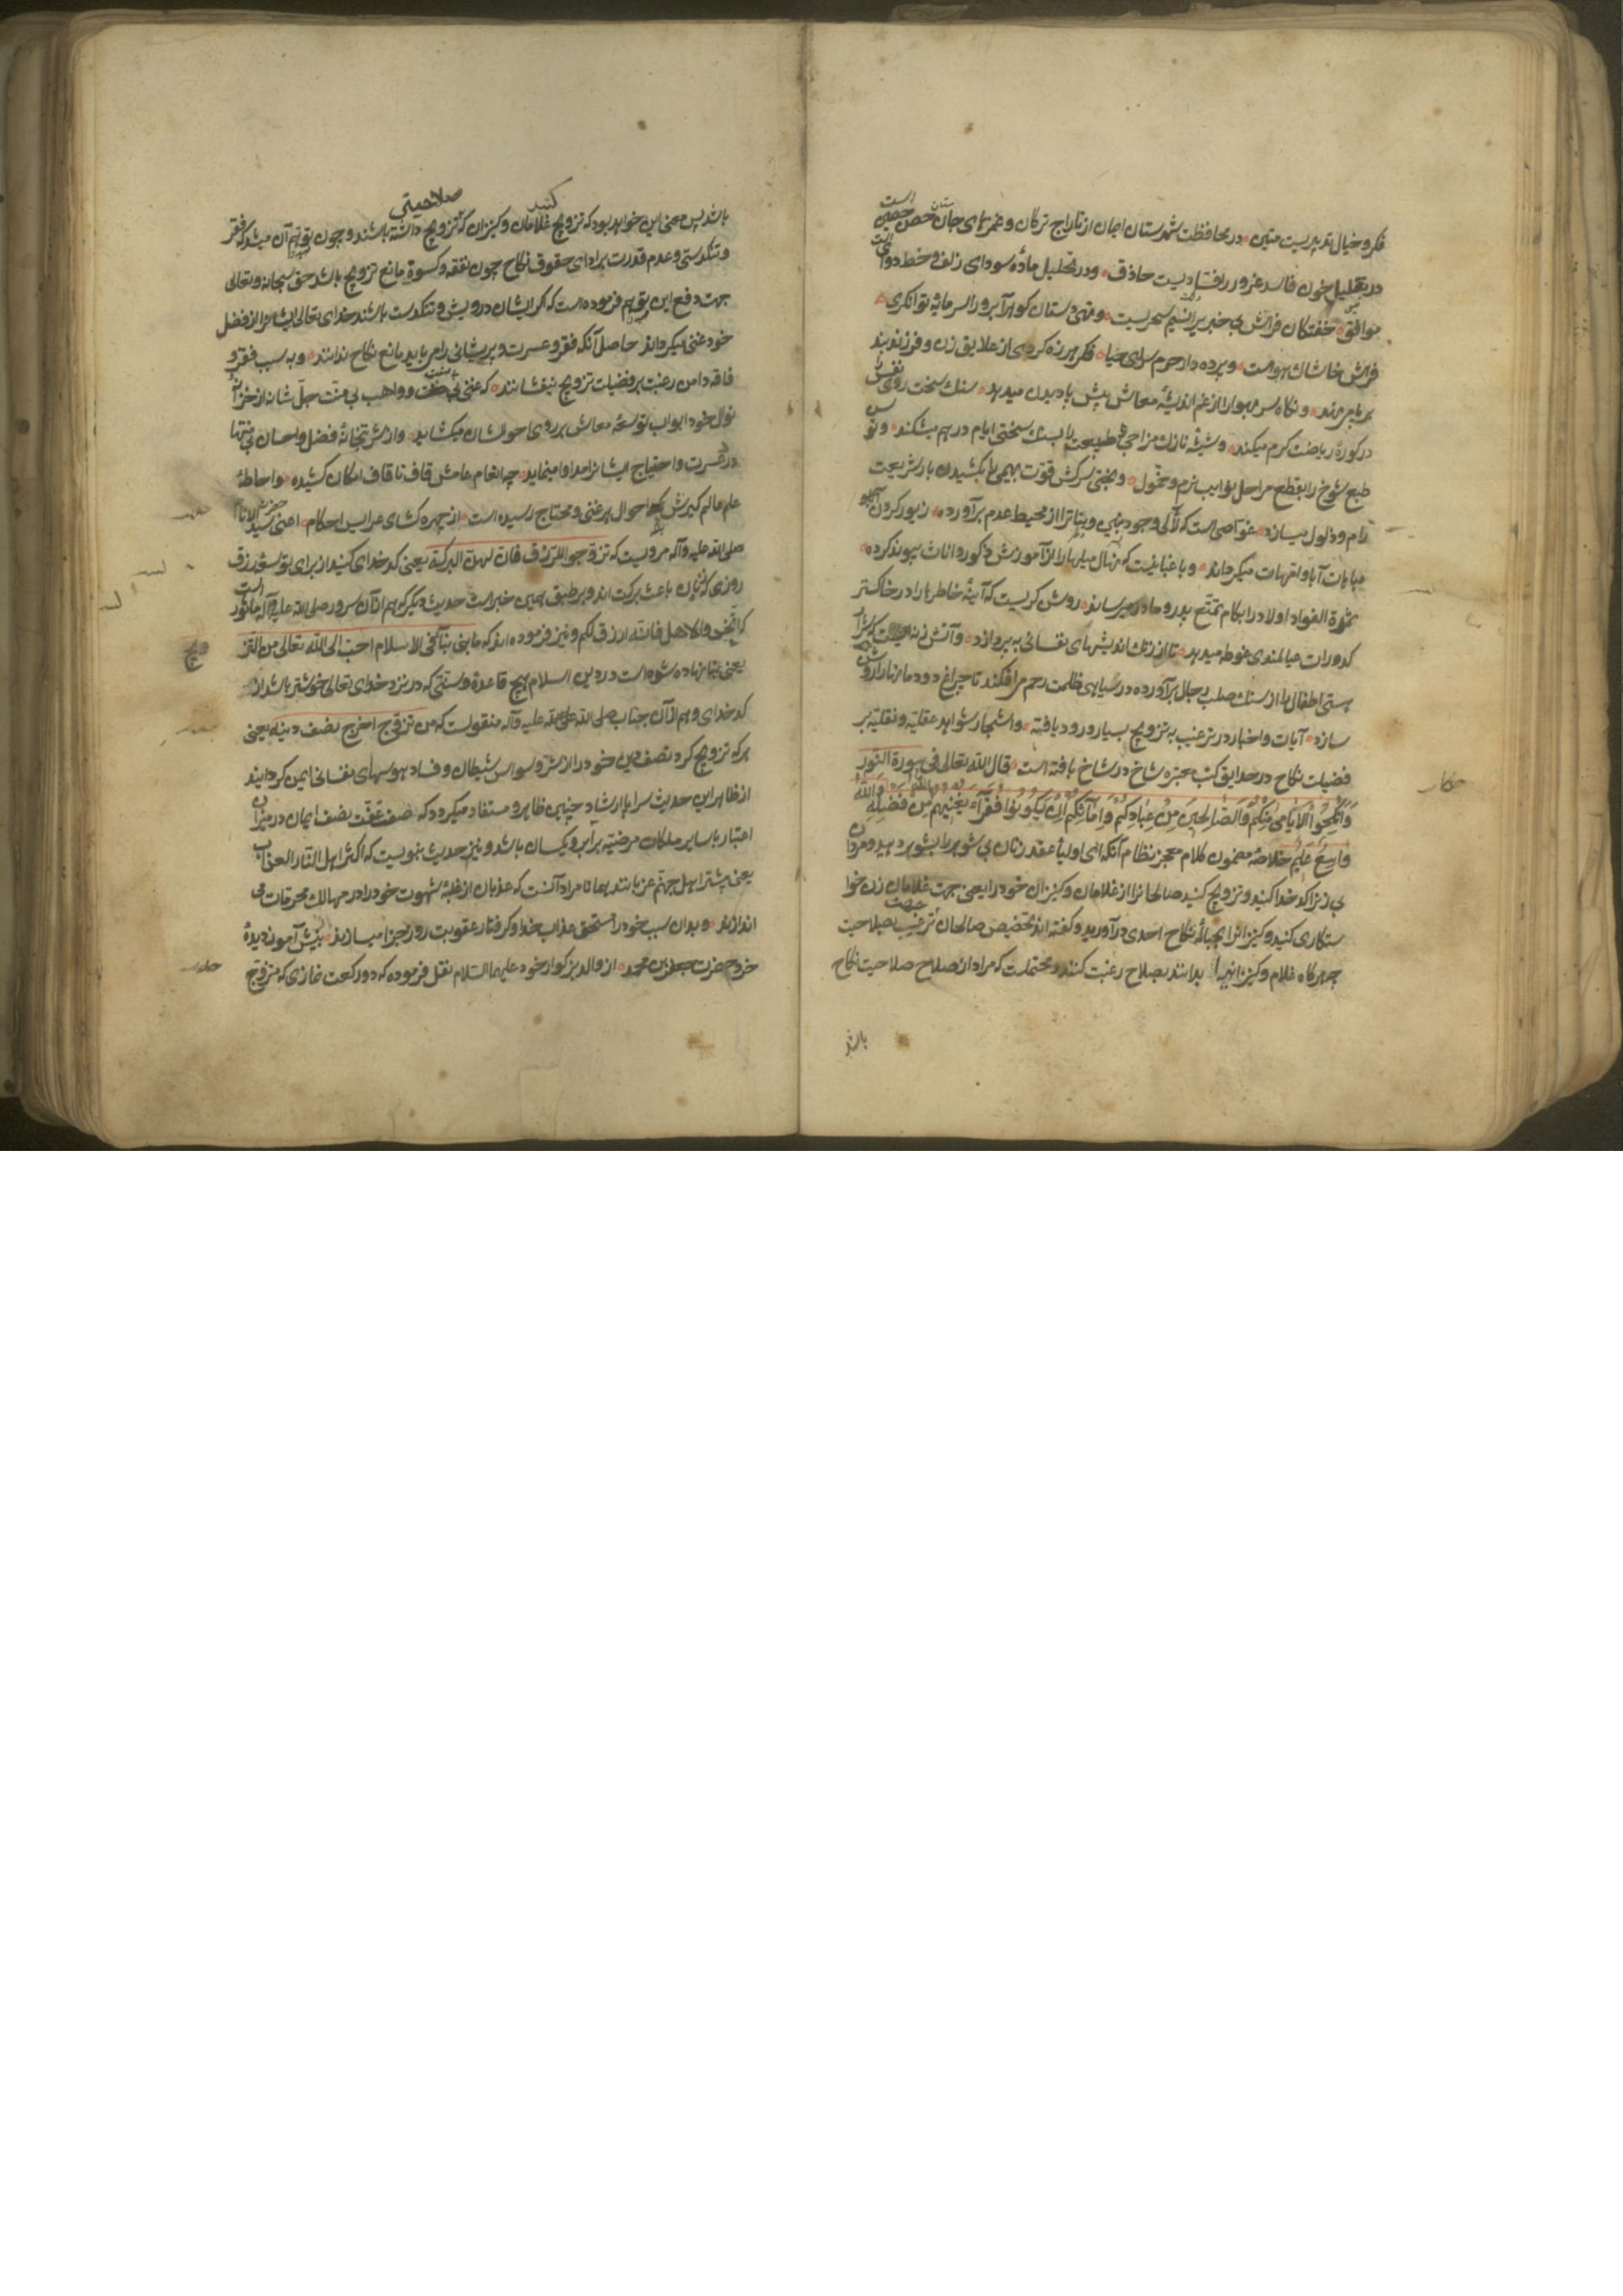 فکر و خیال تدبیریست متین در محافظت شهرستان ایمان از تاراج ترکان و غمزهای جان ستان حصن حصین است
در تقلیل خون فاسد غرور رافصادیست حاذق و در تحلیل ماده سودای زلف و خط دوائی است
موافق خفتکان فراش بی خبریرا نسیم سحریست و تهی دستان کوهر آبرو را سرمایه توانکری
فراش خاشاک هواست و پرده دار حرم سرای حیا فکر هرزه کردی از علایق زن و فرزند بند
بر پا می نهد و نکاه را از غم اندیشه معاش پیش پا دیدن میدهد سنک سخت روی نفس را
در کوره ریاضت کرم میکند و شیشه نازک مزاجی طبیعت را بسنک سختی ایام در هم میشکند و توسن
طبع شوخ را بقطع مراحل نوایب نرم و حمول و بختی سرکش قوت بهیمی را بکشیدن بار شریعت
رام و ذلول میسازد غواصی است که لآلی وجود بنین و بنات را از محیط عدم بر آورده زیور کردن
مباهات آبا و امهات میکرداند و باغبانیست که نهال میلها را از آموزش ذکور و اناث پیوند کرده
ثمرة الفواد اولاد را بکام تمتع پدر و مادر میرساند روشن کریست که آینه خاطرها را در خاکستر
کدورات عیالمندی غوطه میدهد تا از زنک اندیشهای نفسانی بپردازد و آتش زنه ایست که شرار
هستی اطفال را از سنک صلب رجال بر آورده در سیاهی ظلمت رحم میافکند تا چراغ دودمانها را روشن
سازد آیات و اخبار در ترغیب به تزویج بسیار ورود یافته و اشجار شواهد عقلیه و نقلیه بر
فضیلت نکاح در حدایق کتب معتبره شاخ در شاخ بافته است قال الله تعالی فی سورة النور
وَاَنْکِحُوا الْاَیَامی مِنْکُمْ وَالصَّالِحینَ مِنْ عِبَادِکُمْ وَاِمَآئِکُمْ اِنْ یَکُونُوا فُقَرَآءَ یُغْنِهِمُ اللهُ مِنْ فَضْلِهِ وَاللهُ
وَاسِعٌ عَلِیمٌ خلاصه مضمون کلام معجز نظام آنکه ای اولیا عقد زنان بی شوهر را بشوهر دهید و مردان
بی زنرا کدخدا کنید و تزویج کنید صالحانرا از غلامان و کنیزان خود را یعنی جهت غلامان زن خوا
ستکاری کنید و کنیزانرا بحباله نکاح احدی درآورید و کفته اند تخصیص صالحان جهت ترغیب بصلاحیت
چه هرکاه غلام و کنیز بدانند بصلاح رغبت کنند و محتملست که مراد از صلاح صلاحیت نکاح
باشد
باشد پس معنی این خواهد بود که تزویج کنید غلامان و کنیزان که صلاحیتی تزویج داشته باشند و چون توهم آن میشد که فقر
و تنکدستی و عدم قدرت بر ادای حقوق نکاح چون نفقه و کسوة مانع تزویج باشد حق سبحانه و تعالی
جهت دفع این توهم فرموده است که اکر ایشان درویش و تنکدست باشند خدای تعالی ایشانرا از فضل
خود غنی میکرداند حاصل آنکه فقر و عسرت و پریشانی را می باید مانع نکاح ندانند و به سبب فقر و
فاقه دامن رغبت بر فضیلت تزویج نیفشانند که غنی و واهب بی منت جل شانه از خزانه
نوال خود ابواب توسعه معاش بر روی حالشان میکشاید و از شربتخانه فضل و احسان بی منتها
درد عسرت و احتیاج ایشانرا مداوا مینماید چه انعام عامش قاف تا قاف امکان کشیده و احاطه
علم عالم کیرش احوال هر غنی و محتاج رسیده است از چهره کشای عرایس احکام اعنی حضرت سید الانام
صلی الله علیه وآله مرویست که تزوجوا للرزق فان لهن البرکة یعنی کدخدای کنید از برای توسعه رزق
روزی که زنان باعث برکت اند و بر طبق همین خبر است حدیث دیکر که هم از آن سرور صلی الله علیه وآله ماثور است
که اتخذوا الاهل فانه ارزق لکم و نیز فرموده اند که ما بنی بناء فی الاسلام احب الی الله تعالی من التز
ویج
یعنی بنا نهاده نشده است در دین اسلام هیچ قاعده و سنتی که در نزد خدای تعالی خوشتر باشد از
کدخدای و هم از آن جناب صلی الله علیه وآله منقولست که من تزوج احرز نصف دینه یعنی
هرکه تزویج کرد نصف دین خود را از شر وسواس شیطان و فساد هوسهای نفسانی ایمن کردانید
از ظاهر این حدیث سراپا ارشاد چنین ظاهر و مستفاد میکردد که صفت عفت نصف ایمان در میزان
اعتبار با سایر ملکات مرضیه برابر و یکسان باشد و نیز حدیث نبویست که اکثر اهل النار العزاب
یعنی بیشتر اهل جهنم عزبانند همانا مراد آنست که عزبان از غلبه شهوت خود را در مهالک محرمات می
اندازند و بدان سبب خود را مستحق عذاب خدا و کرفتار عقوبت روز جزا میسازند بینش آموز دیده
خرد حضرت جعفر بن محمد از والد بزکوار خود علیهما السلام نقل فرموده که دو رکعت نمازی که متزوج